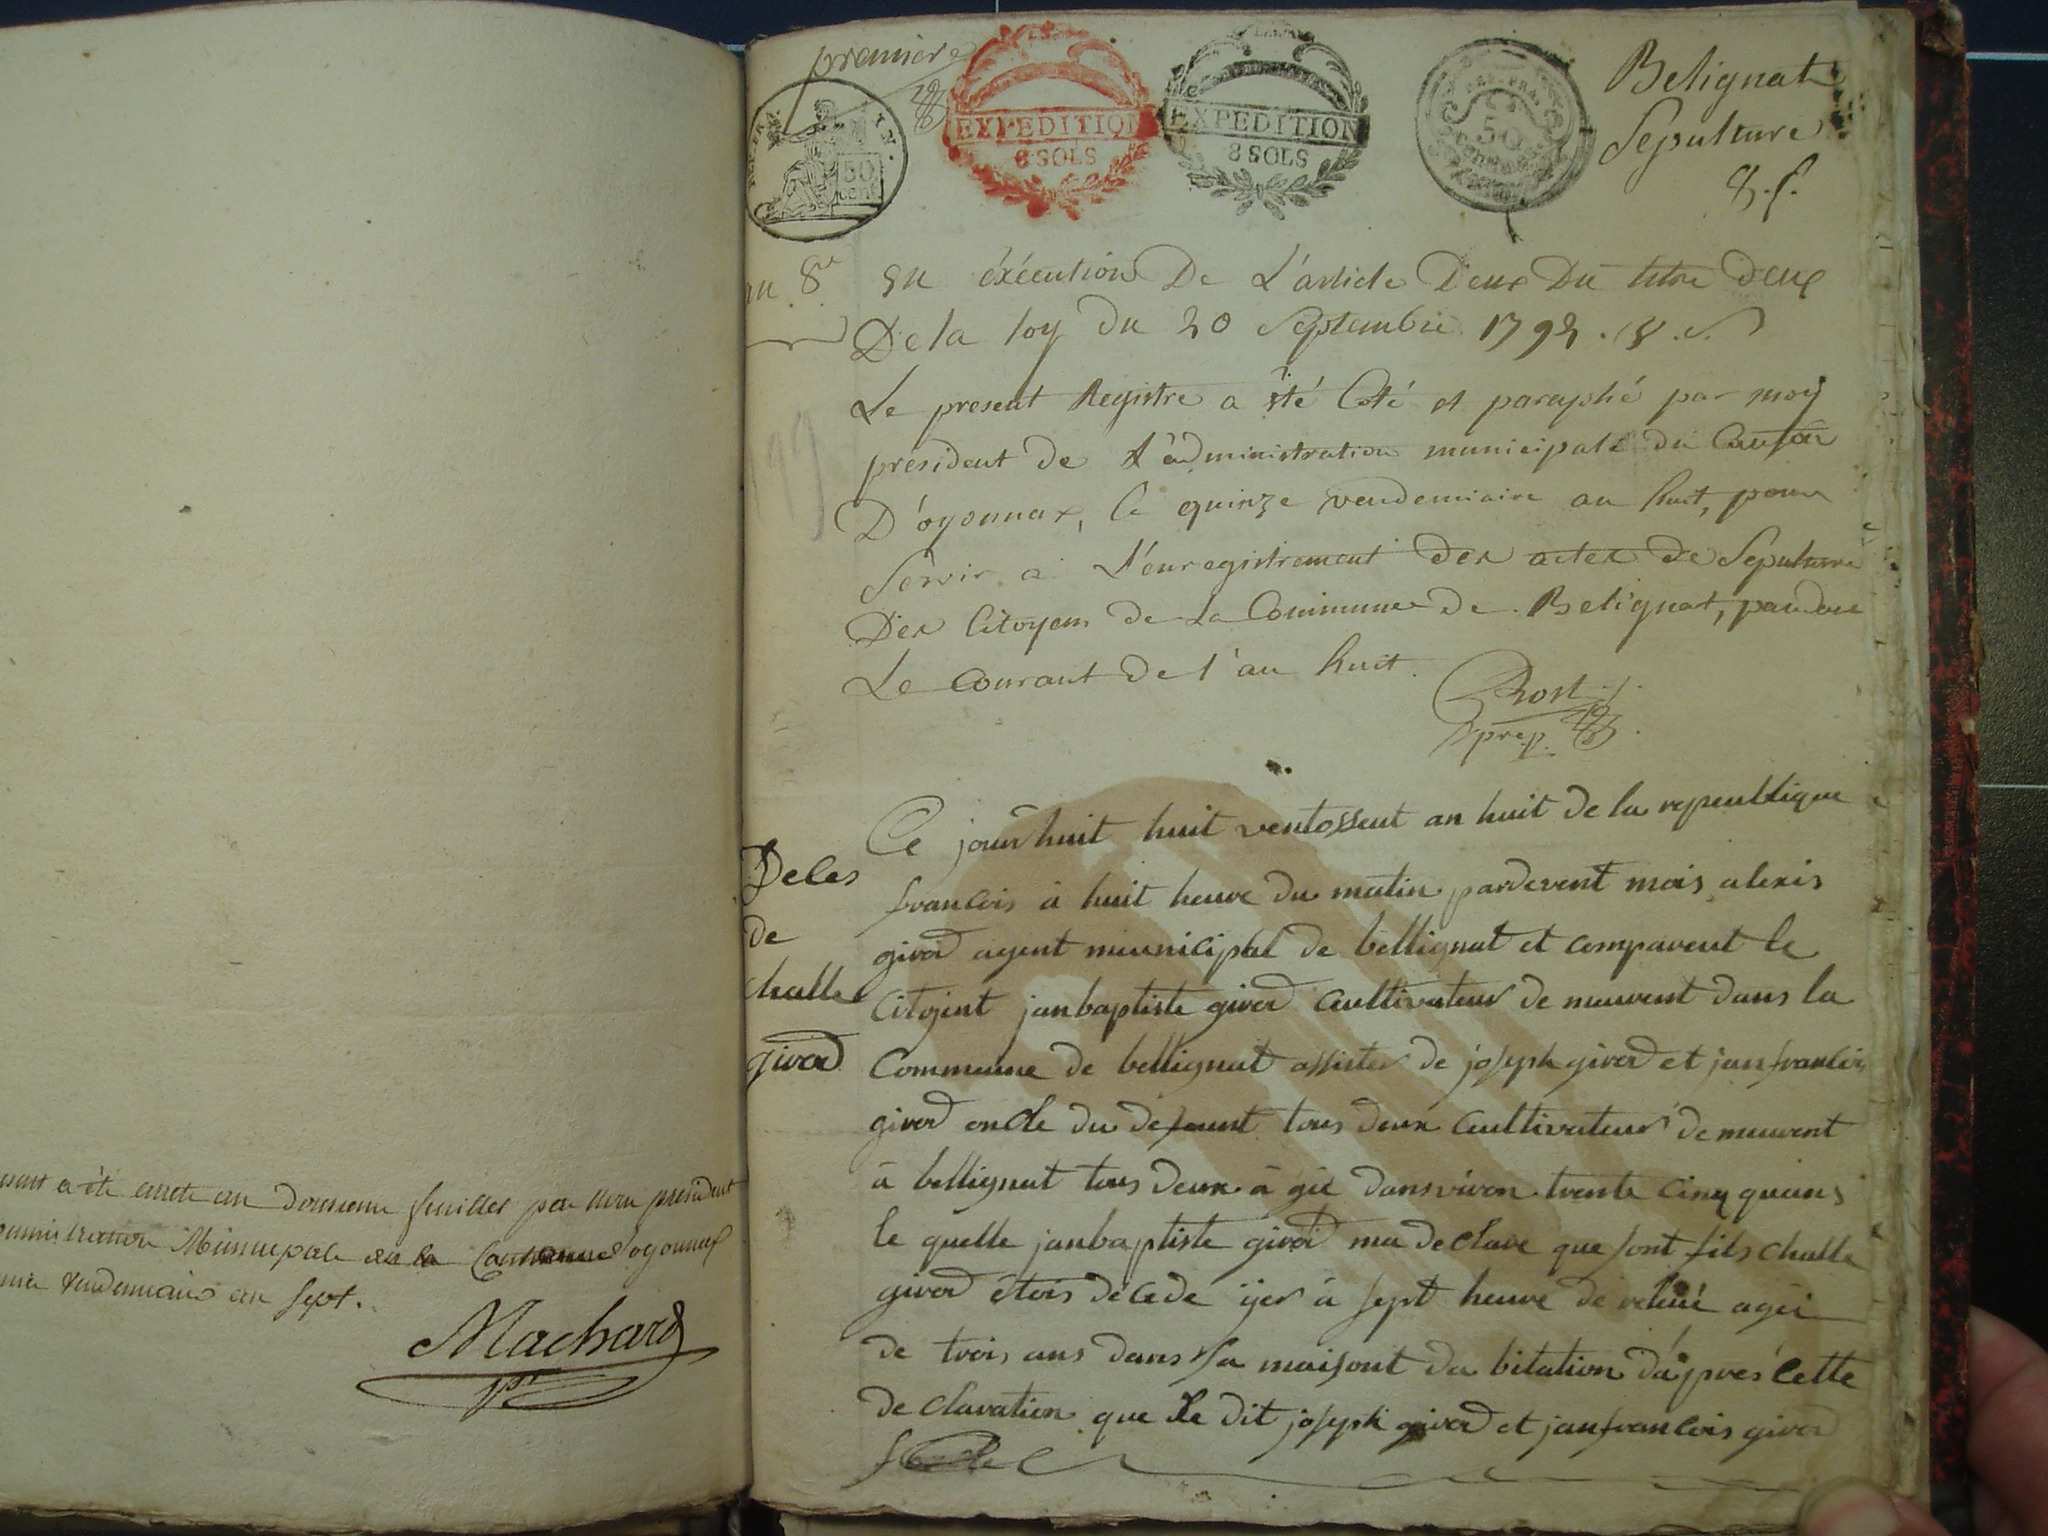 a été en feuilles par president
Municipale de la d'oyonnax
vendemiaire an sept.
Machard
pt
premiere
50
cent
EXPEDITION
8 SOLS
EXPEDITION
8 SOLS
50
Belignat
Sepulture
8.f.
an 8e
En éxécution De L'article Deux Du titre deux
De la loy du 20 Septembre 1792.
Le present Registre a été Coté et paraphé par moy
président de L'administration municipale du Canton
D'oyonnax, le quinze vendemiaire an huit, pour
Servir a L'enregistrement des actes de Sepulture
Des Citoyens de La Commune de Belignat, pendant
Le Courant de l'an huit.
Rost
Deces
de
challe
girod
Ce jour huit huit ventosseut an huit de la republique
francois à huit heure du matin pardevent mois alexis
girod agent municipal de bellignat et comparent le
Citojent janbaptiste girod cultivateur demeurent dans la
Commune de bellignat assister de joseph girod et janfrancois
girod oncle du defount tous deux cultivateur demeurent
à bellignat tous deux à gié danviron trente cinq quans
le quelle janbaptiste girod ma declare que sont fils challe
girod étois décede ÿer à sept heure de agéi
de trois ans dans sa maisont da bitation dápres cette
declaration que le dit joseph girod et janfrancois girod